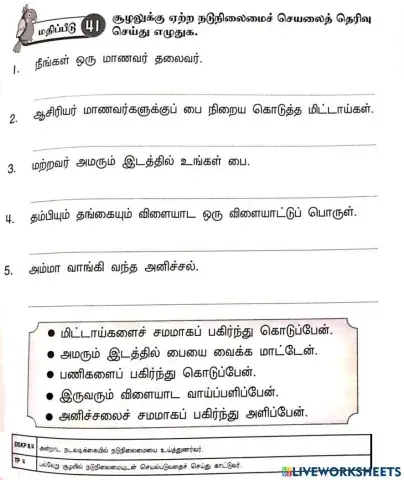 மதிப்பீடு 41
சூழலுக்கு ஏற்ற நடுநிலைமைச் செயலைத் தெரிவு
செய்து எழுதுக.
1. நீங்கள் ஒரு மாணவர் தலைவர்.
2. ஆசிரியர் மாணவர்களுக்குப் பை நிறைய கொடுத்த மிட்டாய்கள்.
3. மற்றவர் அமரும் இடத்தில் உங்கள் பை.
4. தம்பியும் தங்கையும் விளையாட ஒரு விளையாட்டுப் பொருள்.
5. அம்மா வாங்கி வந்த அனிச்சல்.
● மிட்டாய்களைச் சமமாகப் பகிர்ந்து கொடுப்பேன்.
● அமரும் இடத்தில் பையை வைக்க மாட்டேன்.
● பணிகளைப் பகிர்ந்து கொடுப்பேன்.
● இருவரும் விளையாட வாய்ப்பளிப்பேன்.
● அனிச்சலைச் சமமாகப் பகிர்ந்து அளிப்பேன்.
DSKP அன்றாட நடவடிக்கையில் நடுநிலைமையை உய்த்துணர்வர்.
TP பல்வேறு சூழலில் நடுநிலைமையுடன் செயல்படுவதைச் செய்து காட்டுவர்.
LIVEWORKSHEETS